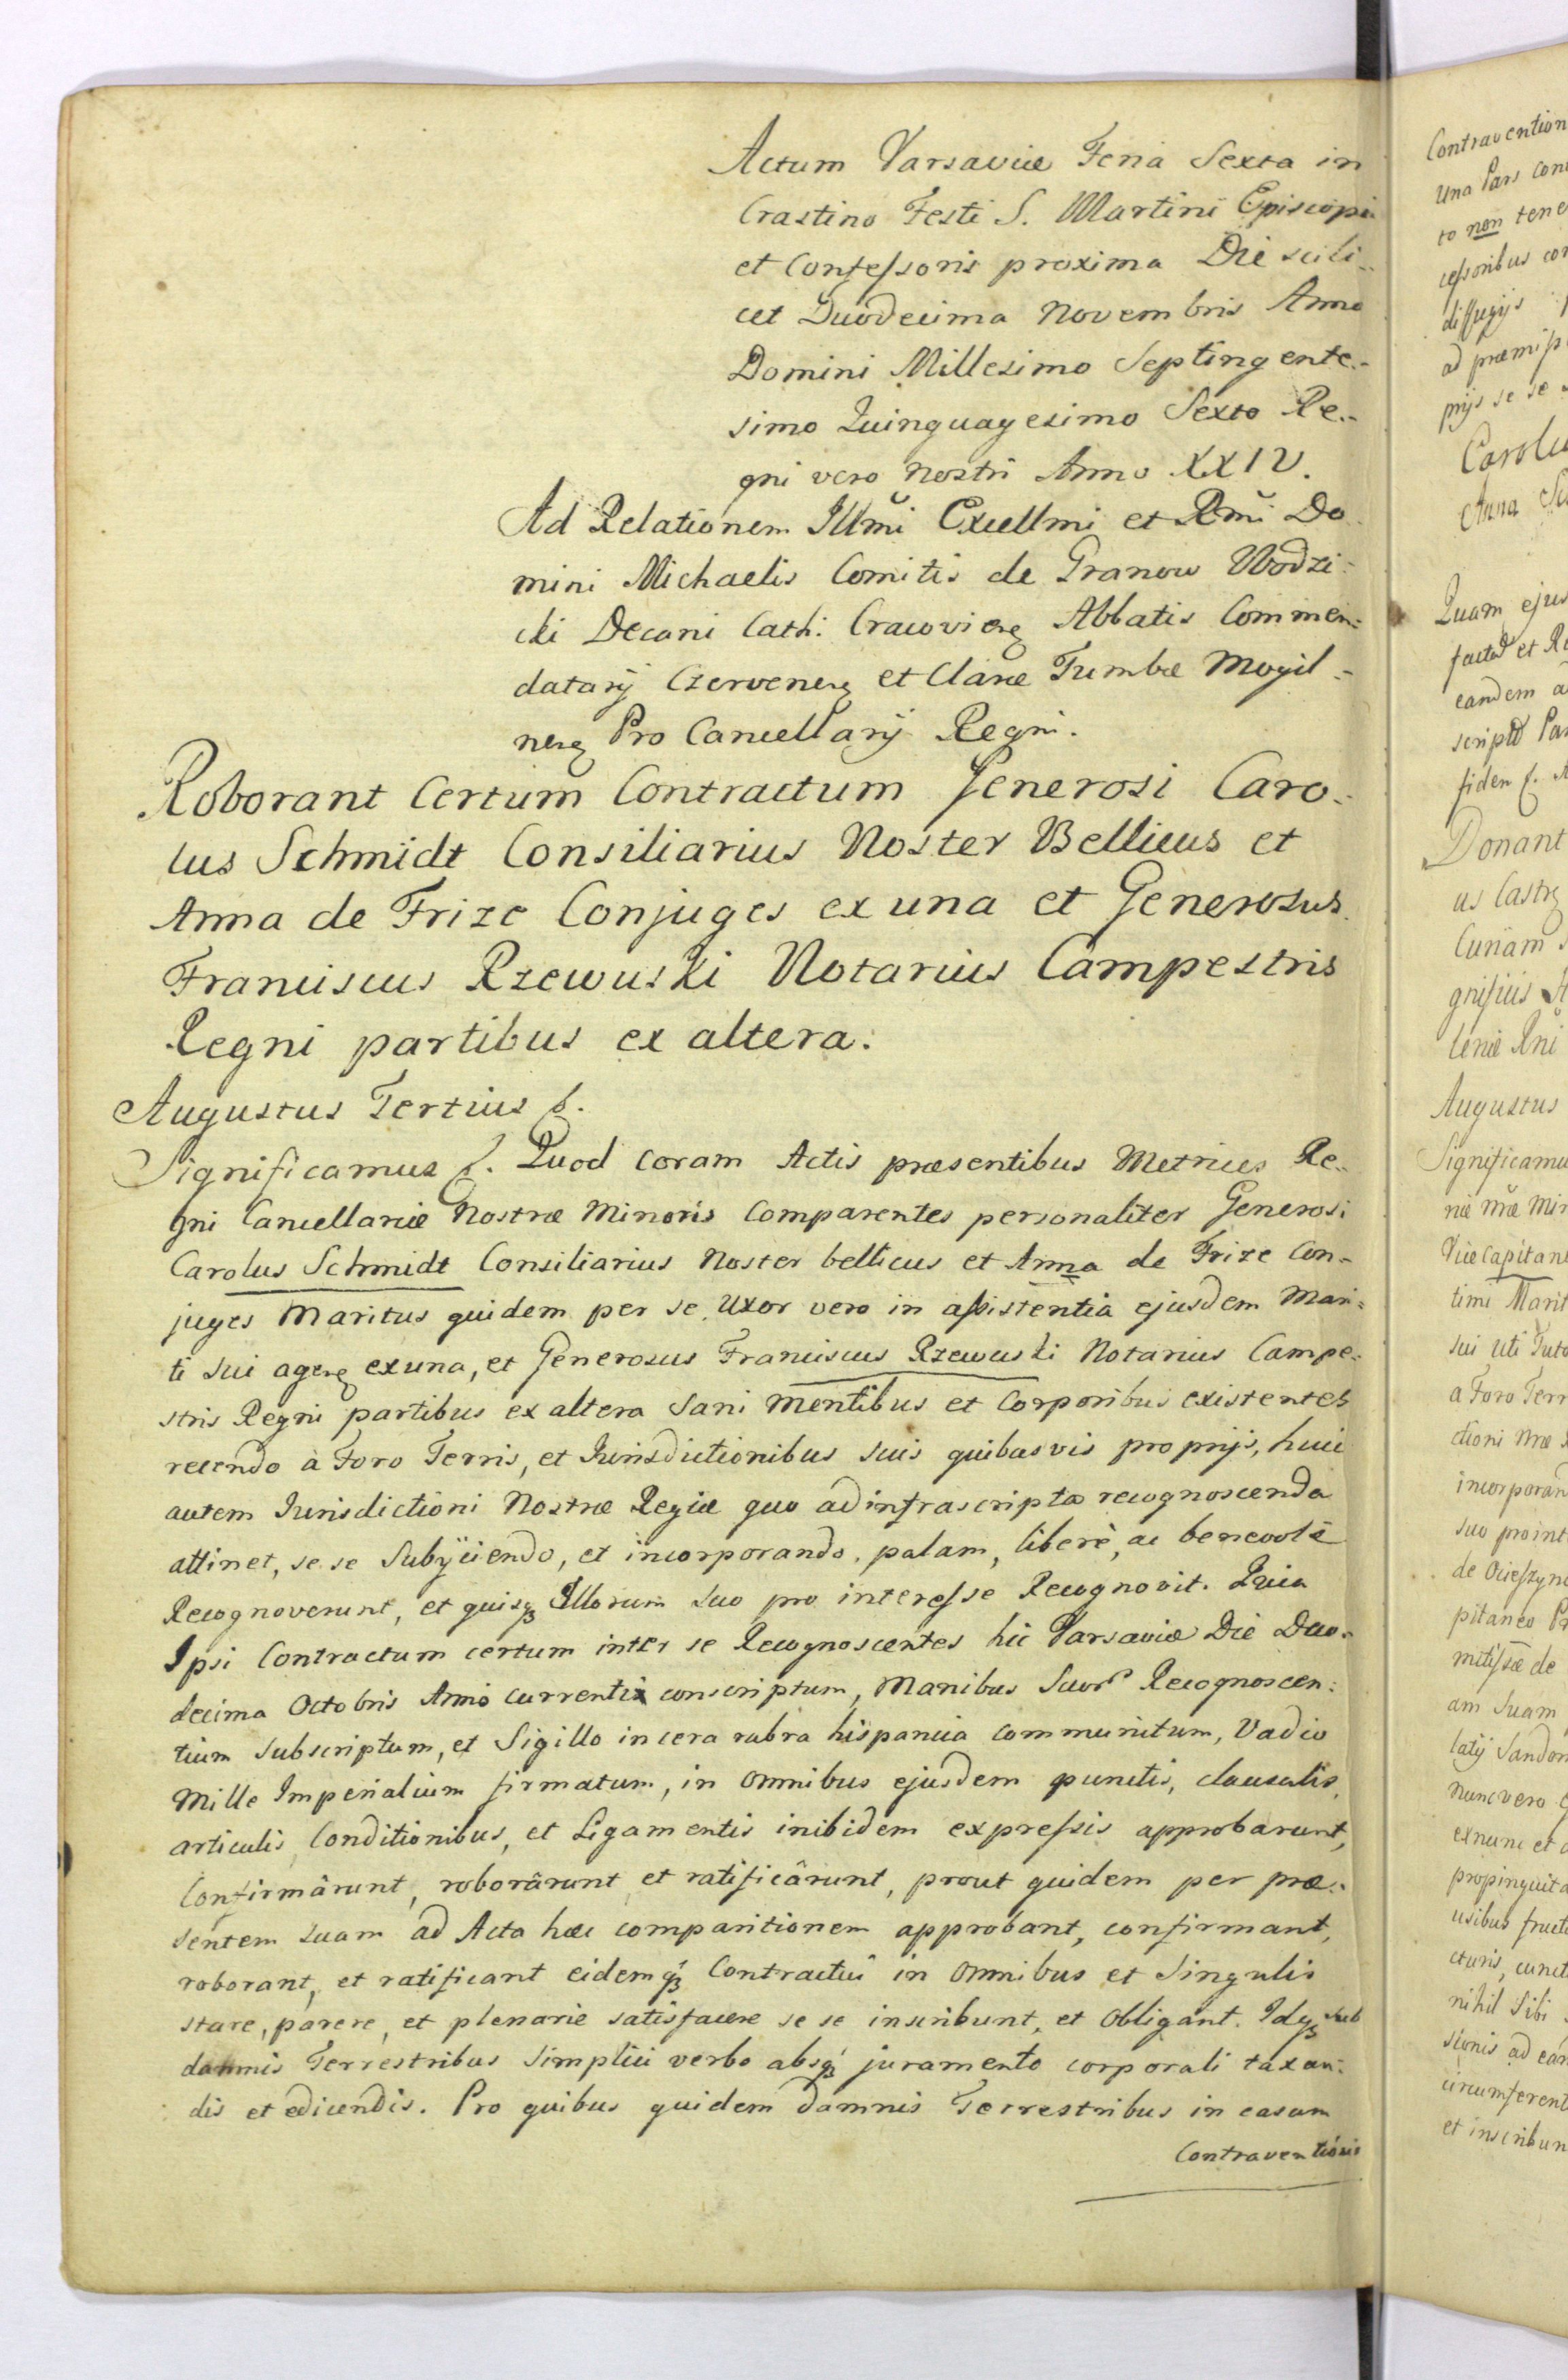 Actum Varsaviæ Feria Sexta in
Crastino Festi S. Martini Episcopi
et Confessoris proxima Die scili-
cet Duodecima Novembris Anno
Domini Millesimo Septingente-
simo Quinquagesimo Sexto Re-
gni vero nostri Anno XXIV.
Ad Relationem Illmi Excellmi et Rmi Do
mini Michaelis Comitis de Granow Wodzi-
cki Decani Cath: Cracovieng Abbatis Commen-
datarij Czerveneng et Claræ Tumbæ Mogil-
neng Pro Cancellarij Regni.
Roborant Certum Contractum Generosi Caro-
lus Schmidt Consiliarius Noster Bellicus et
Anna de Frize Conjuges ex una et Generosus
Franciscus Rzewuski Notarius Campestris
Regni partibus ex altera.
Augustus Tertius &.
Significamus &. Quod coram Actis præsentibus Metrices Re-
gni Cancellariæ Nostræ Minoris Comparentes personaliter Generosi
Carolus Schmidt Consiliarius Noster bellicus et Anna de Frize Con-
juges Maritus quidem per se, Uxor vero in assistentia ejusdem Mari-
ti sui agens ex una, et Generosus Franciscus Rzewuski Notarius Campe-
stris Regni partibus ex altera Sani mentibus et Corporibus existentes
recendo à Foro Terris, et Jurisdictionibus suis quibusvis proprijs, huic
autem Jurisdictioni Nostræ Regiæ quo ad infrascripta recognoscenda
attinet, se se Subijciendo, et incorporando, palam, liberè, ac benevolè
Recognoverunt, et quisq3 Illorum suo pro interesse Recognovit. Quia
Ipsi Contractum certum inter se Recognoscentes hic Varsaviæ Die Duo-
decima Octobris Anno currentis conscriptum, Manibus Suor Recognoscen-
tium subscriptum, et Sigillo in cera rubra hispanica communitum, Vadio
Mille Imperialium firmatum, in Omnibus ejusdem punctis, clausulis,
articulis Conditionibus, et Ligamentis inibidem expressis approbarunt,
Confirmârunt, roborârunt et ratificârunt, prout quidem per præ-
sentem suam ad Acta hæc comparitionem approbant, confirmant,
roborant, et ratificant eidemq3 Contractui in Omnibus et Singulis
stare, parere, et plenarie satisfacere se se inscribunt, et Obligant. Idq3 sub
damnis Terrestribus Simplici verbo absq3 juramento corporali taxan-
dis et edicendis. Pro quibus quidem damnis Terrestribus in casum
Contraventionis
Contravention
Una Pars
to non tene
cessoribus
diffugijs
ad præmiss
prijs se se
Carolu
Anna
Quam ejus
factâ et
eandem
script
fidem &.
Donant
us Castr
Curiam
Augustus
Significamu
niæ nræ Min
Vice Capitan
timi Marit
sui uti Tuto
a Foro Terr
ctioni nræ
incorporan
suo pro int
de
pitaneo
de
am Suam
latij Sandom
Nunc vero
ex nunc et
propinquita
usibus fruct
cturis, cunct
nihil Sibi
sionis ad
circumferent
et inscribun